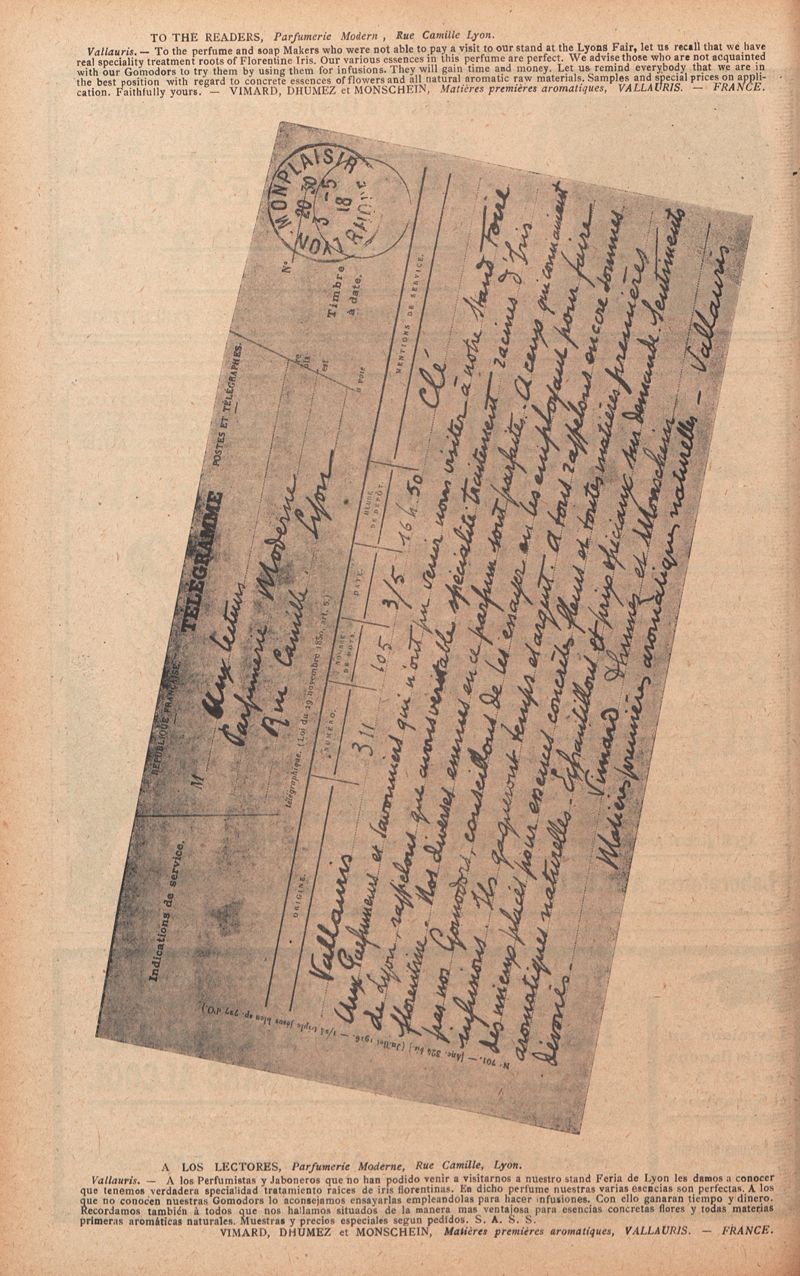 TO THE READERS, Parfumerie Modern, Rue Camille Lyon.
Vallauris. — To the perfume and soap Makers who were not able to pay a visit to our stand at the Lyons Fair, let us recall that we have
real speciality treatment roots of Florentine Iris. Our various essences in this perfume are perfect. We advise those who are not acquainted
with our Gomodors to try them by using them for infusions. They will gain time and money. Let us remind everybody that we are in
the best position with regard to concrete essences of flowers and all natural aromatic raw materials. Samples and special prices on appli-
cation. Faithfully yours. — VIMARD, DHUMEZ et MONSCHEIN, Matières premières aromatiques, VALLAURIS. — FRANCE.
RÉPUBLIQUE FRANÇAISE
TÉLÉGRAMME
POSTES ET TÉLÉGRAPHES.
Indications de service.
M
Aux lecteurs
Parfumerie Moderne
Rue Camille. Lyon
N°
Timbre
à date.
MONPLAISIR
20 30
3 - 5
18
LYON RHÔNE
télégraphique. (Loi du 29 novembre 1850, art. 6.)
ORIGINE.
NUMÉRO.
NOMBRE
DE MOTS.
DATE.
HEURE
DE DÉPÔT.
MENTIONS DE SERVICE.
Vallauris 311 105 3/5 16 h. 50 Clé
Aux Parfumeurs et Savonniers qui n'ont pu venir nous visiter à notre Stand Foire
de Lyon, rappelons que avons véritable spécialité traitement racines d'Iris
florentine. Nos diverses essences en ce parfum sont parfaites. A ceux qui connaissent
pas nos Gomodors, conseillons de les essayer en les employant pour faire
infusions. Ils gagneront temps et argent. A tous rappelons encore sommes
des mieux placés pour essences concrètes fleurs et toutes matières premières
aromatiques naturelles. Echantillons et prix spéciaux sur demande. Sentiments
dévoués.
Vimard Dhumez et Monschein
Matières premières aromatiques naturelles - Vallauris
N° 701. —
A LOS LECTORES, Parfumerie Moderne, Rue Camille, Lyon.
Vallauris. — A los Perfumistas y Jaboneros que no han podido venir a visitarnos a nuestro stand Feria de Lyon les damos a conocer
que tenemos verdadera specialidad tratamiento raices de iris florentinas. En dicho perfume nuestras varias esencias son perfectas. A los
que no conocen nuestras Gomodors lo aconsejamos ensayarlas empleandolas para hacer infusiones. Con ello ganaran tiempo y dinero.
Recordamos también à todos que nos hallamos situados de la manera mas ventajosa para esencias concretas flores y todas materias
primeras aromáticas naturales. Muestras y precios especiales segun pedidos. S. A. S. S.
VIMARD, DHUMEZ et MONSCHEIN, Matières premières aromatiques, VALLAURIS. — FRANCE.